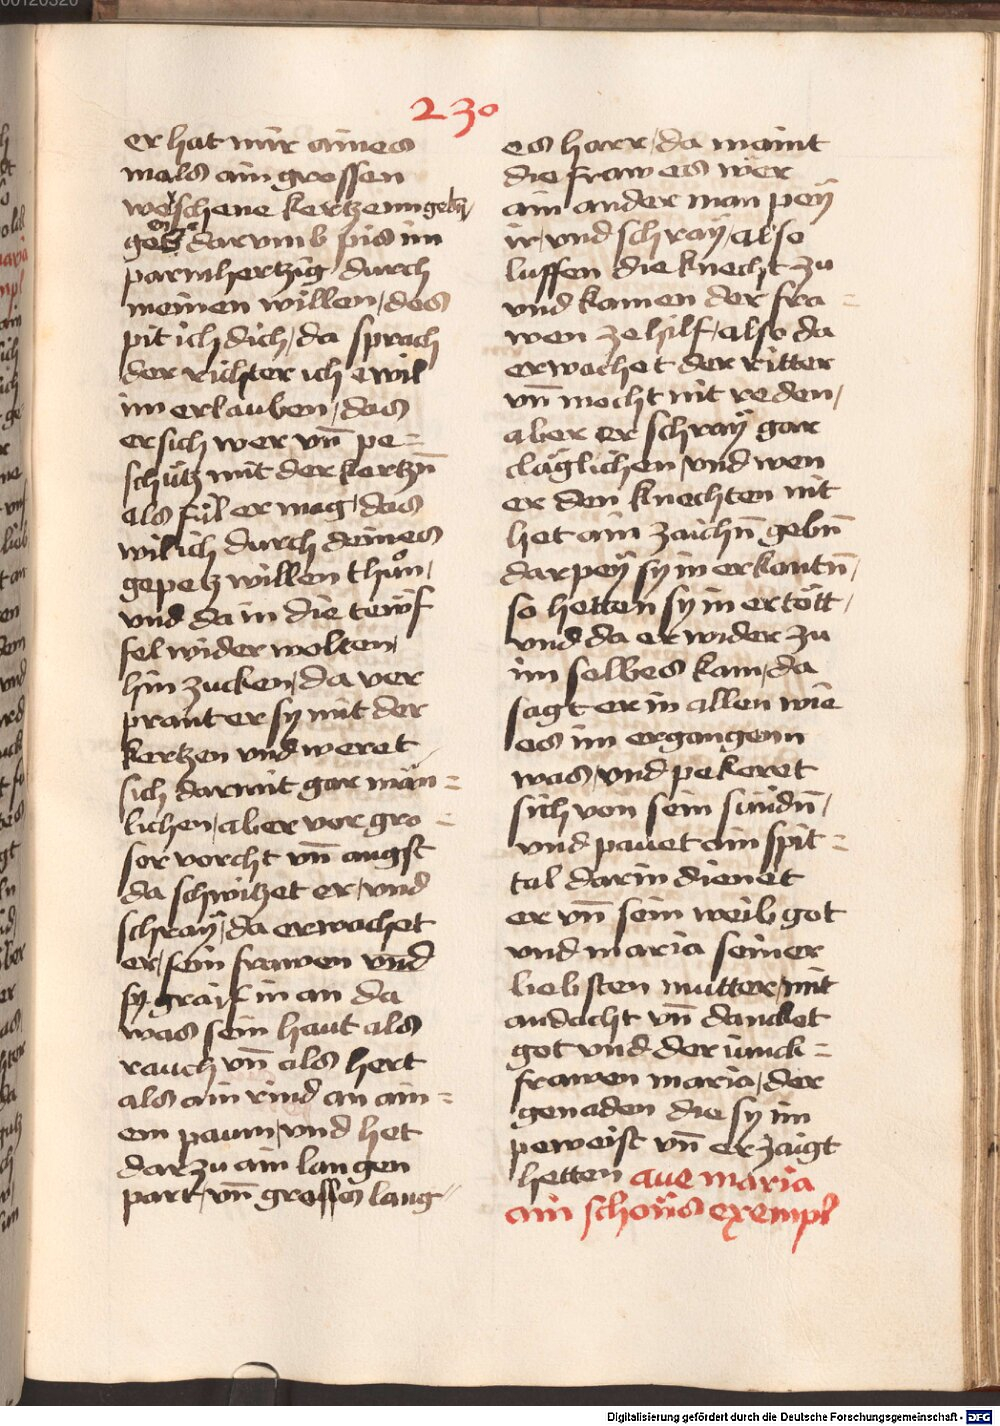 230
er hat mir aines
mals ain grossen
weyschene kertzenn gebn/
geben darumb pis im
parmhertzig durch
meinen willen/ des
pit ich dich/ da sprach
der richter ich ewil
im erlauben/ das
er sich wer vn̄ pe=
schütz mit der kertzn̄
als fil er mag/ das
wil ich durch deines
gepetz willen thůn/
vnd da in die tewf
fel wider wolten/
hin zucken/ da ver
prant er sy mit der
kertzen vnd weret
sich darmit gar män=
lichen/ aber vor gro=
ser vorcht vn̄ angst
da schwitzet er/ vnd
schraÿ/ da erwachet
er/ sein frawen vnd
sy graif in an da
was sein haut als
rauch vn̄ als hert
als ain rind an ain=
em paum/ vnd het
darzu ain langen
part/ vn̄ grosses lang=
es harr/ da maint
die fraw es wer
ain ander man peÿ
ir/ vnd schraÿ/ also
luffen die knecht zu
vnd kamen der fra=
wen ze hilf/ also da
erwachet der ritter
vn̄ mocht nit reden/
aber er schraÿ gar
cläglichen/ vnd wen
er den knechten nit
het ain zaichn̄ gebn̄
dar peÿ sy in erkantn̄/
so hetten sy in ertött/
vnd da er wider zu
im selbes kam/ da
sagt er in allen wie
es im ergangenn
was/ vnd pekeret
sich von sein sündn̄/
vnd pauet ain spit=
tal dar in dienet
er vn̄ sein weib got
vnd maria seiner
liebsten mutter/ mit
andacht vn̄ dancket
got vnd der iunck=
frawen maria/ der
genaden die sy im
peweist vn̄ erzaigt
hetten aue maria
ain schöns exempl
Digitalisierung gefördert durch die Deutsche Forschungsgemeinschaft - DFG